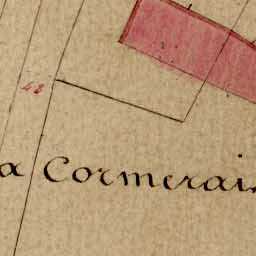 48
a Cormerai